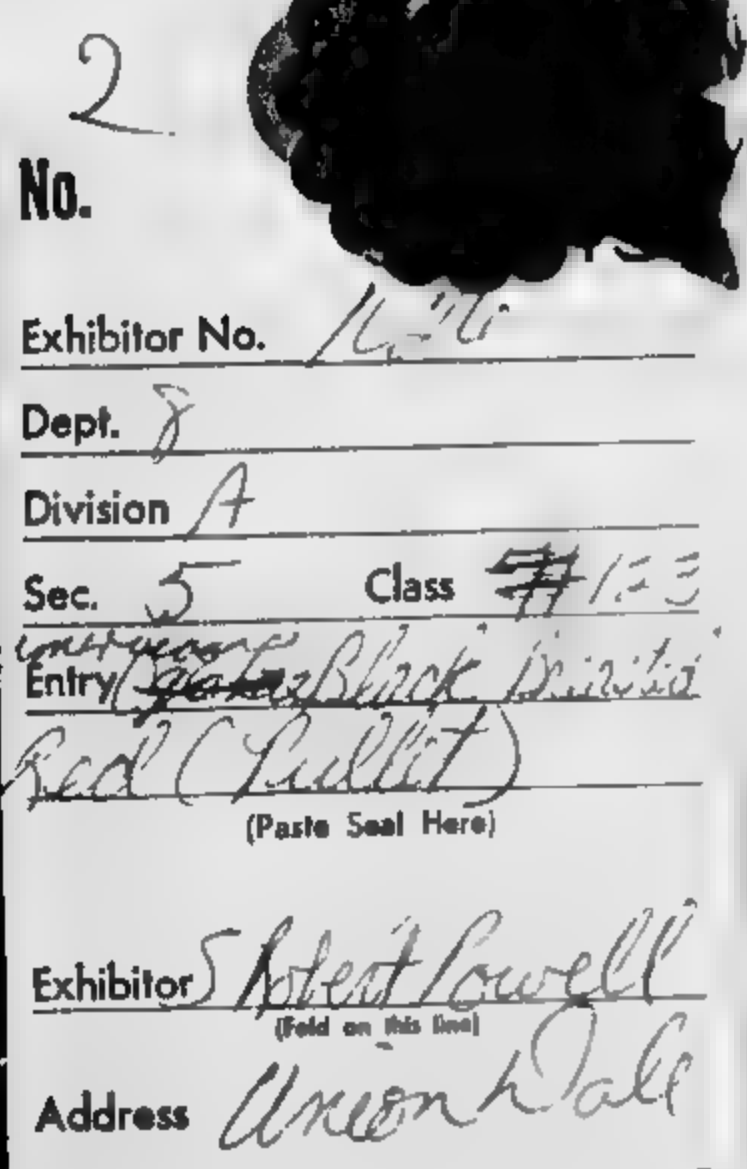 2
No.
Exhibitor No.
Dept. 8
Division A
Sec. 5 Class
Entry Black
Red (Pullit)
(Paste Seal Here)
Exhibitor S Robert Powell
(Fold on this line)
Address Union Dale